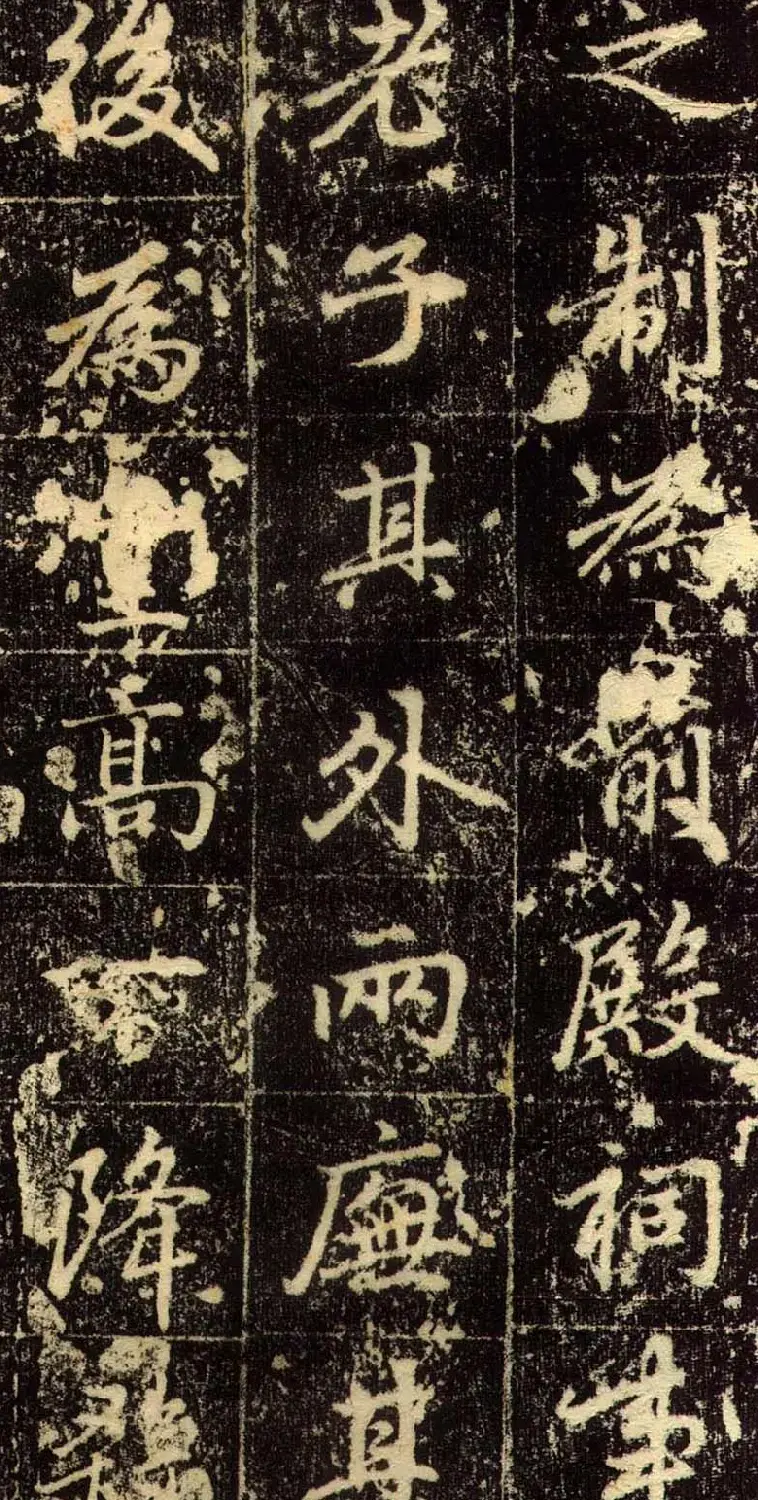 之制為前殿祠事
老子其外兩廡其
後為堂高降